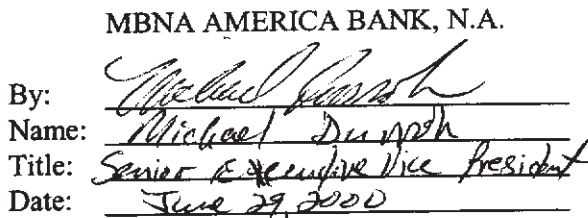 MBNA AMERICA BANK, N.A.
By:
Name: Michael
Title: Senior Executive Vice President
Date: June 29, 2000